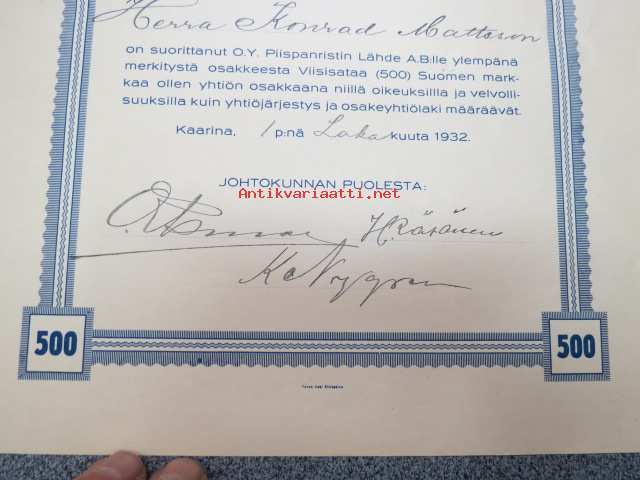 Herra Konrad Mattsson
on suorittanut O.Y. Piispanristin Lähde A.B:lle ylempänä
merkitystä osakkeesta Viisisataa (500) Suomen mark-
kaa ollen yhtiön osakkaana niillä oikeuksillla ja velvolli-
suuksilla kuin yhtiöjärjestys ja osakeyhtiölaki määräävät.
Kaarina, 1 p:nä Lokakuuta 1932.
JOHTOKUNNAN PUOLESTA:
Antikvariaatti.net
H. Räsänen
K A Nygren
500
500